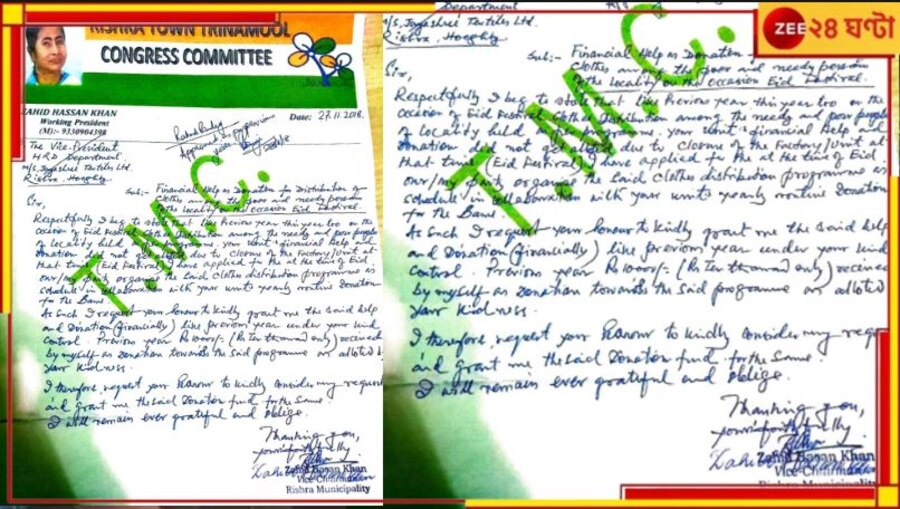 RISHRA TOWN TRINAMOOL
CONGRESS COMMITTEE
ZAHID HASSAN KHAN
Working President
(M):- 9330964398
Date: 27.11.2018.
The Vice-President
HRD Department
M/S, Jayashree Textiles Ltd.
Rishra, Hooghly
Sub:- Financial Help as Donation for Distribution of
Clothes among the poor and needy person
of the locality on the Occasion Eid Festival.
Sir,
Respectfully I beg to state that like Previous year this year too on the
occasion of Eid Festival Clothes Distribution among the needy and poor people
of locality held programme. Your Unit's financial Help and
Donation did not get due to closure of the Factory/Unit at
that time (Eid Festival) I have applied for the at the time of Eid.
our/my party organise the Said Clothes distribution programme as
schedule in collaboration with your units yearly routine Donation
for the
As Such I request your honour to kindly grant me the said help
and Donation (financially) like previous year under your kind
control. Previous year Rs 10000/- (Rs Ten thousand only) received
by myself as Donation towards the said programme as alloted
your kindness.
I therefore, request your Honour to kindly consider my reques
and grant me the said Donation fund for the Same.
I will remain ever grateful and oblige.
Thanking you,
yours faithfully
Zahid Hasan Khan
Vice-Chairman
Rishra Municipality
T.M.C.
Department
M/S, Jayashree Textiles Ltd.
Rishra, Hooghly
Sub:- Financial Help as Donation
Clothes among the poor and needy person
of the locality on the Occasion Eid Festival.
Sir,
Respectfully I beg to state that like Previous year this year too on the
occasion of Eid Festival Clothes Distribution among the needy and poor people
of locality held programme. Your Unit's financial Help and
Donation did not get due to closure of the Factory/Unit at
that time (Eid Festival) I have applied for the at the time of Eid.
our/my party organise the Said Clothes distribution programme as
schedule in collaboration with your units yearly routine Donation
for the
As Such I request your honour to kindly grant me the said help
and Donation (financially) like previous year under your kind
control. Previous year Rs 10000/- (Rs Ten thousand only) received
by myself as Donation towards the said programme as alloted
your kindness.
I therefore, request your Honour to kindly consider my reques
and grant me the said Donation fund for the Same.
I will remain ever grateful and oblige.
Thanking you,
yours faithfully
Zahid Hasan Khan
Vice-Chairman
Rishra Municipality
T.M.C.
ZEE ২৪ ঘণ্টা